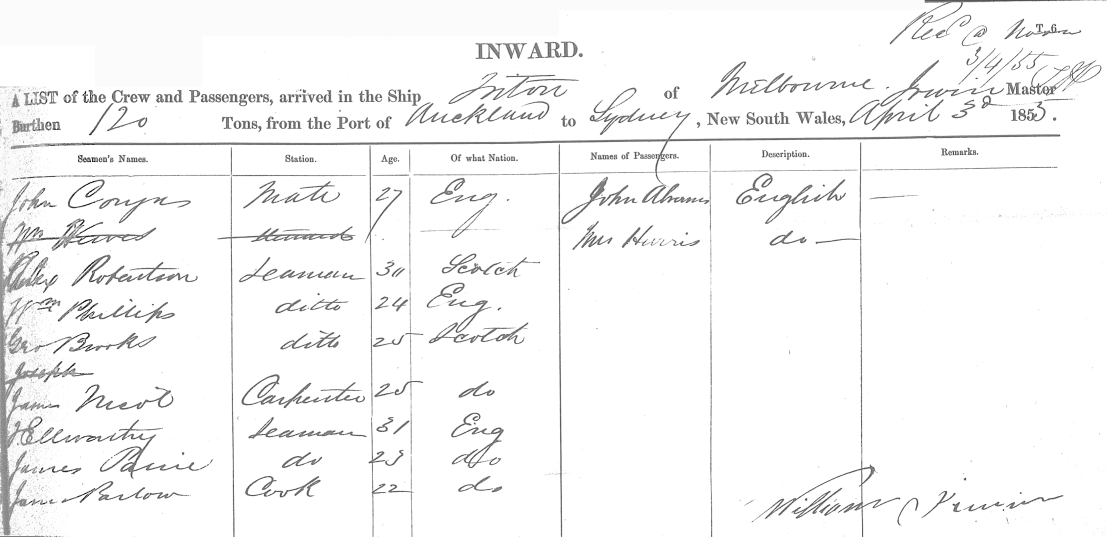 Recd @ Noon T. 6.
3/4/55
INWARD.
A LIST of the Crew and Passengers, arrived in the Ship Triton of Melbourne. Irwin Master
Burthen 120 Tons, from the Port of Auckland to Sydney, New South Wales, April 3d 1855.
Seamen's Names. Station. Age. Of what Nation. Names of Passengers. Description. Remarks.
John Mate 27 Eng. John Abrams English —
Wm Steward Mrs Harris do —
Robertson Seaman 30 Scotch
Wm Phillips ditto 24 Eng.
Geo Brooks ditto 25 Scotch
Joseph
James Nicol Carpenter 25 do
J Ellworthy Seaman 31 Eng
James do 23 do
James Barlow Cook 22 do
William Irwin